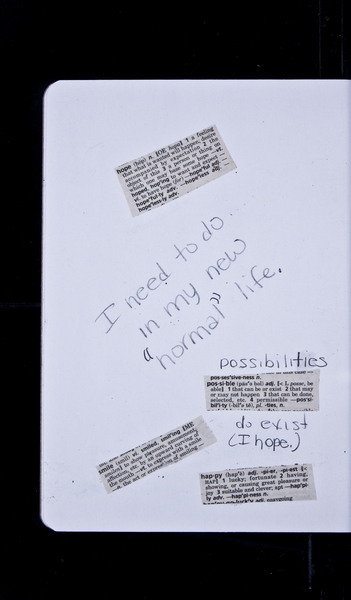 hope (hōp) n. [OE hopa] 1 a feeling
that what is wanted will happen; desire
accompanied by expectation 2 the
object of this 3 a person or thing on
which one may base some hope —vt.
hoped, hop'ing to want and expect —
vi. to have hope (for) —hope'ful adj. —
hope'ful·ly adv. —hope'less adj.
hope'less·ly adv.
I need to do
in my new
"normal" life.
possibilities
pos·ses'sive·ness n.
pos·si·ble (päs'ə bəl) adj. [< L posse, be
able] 1 that can be or exist 2 that may
or may not happen 3 that can be done,
selected, etc. 4 permissible —pos'si·
bil'i·ty (-bil'ə tē), pl. -ties, n.
do exist
(I hope.)
smile (smīl) vi. smiled, smil'ing [ME
smilen] to show pleasure, amusement,
affection, etc. by an upward curving of
the mouth —vt. to express with a smile
—n. the act of smiling —
hap·py (hap'ē) adj. -pi·er, -pi·est [<
HAP] 1 lucky; fortunate 2 having,
showing, or causing great pleasure or
joy 3 suitable and clever; apt —hap'pi·
ly adv. —hap'pi·ness n.